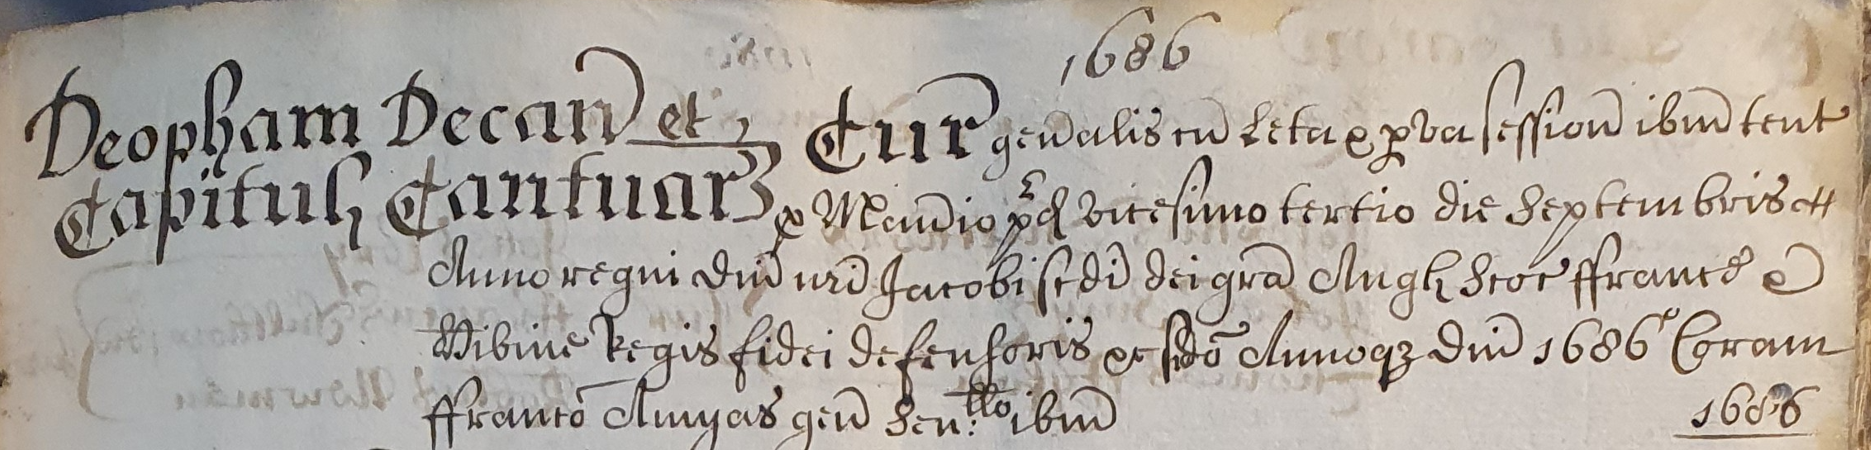 1686
Deopham Decan et
Capituli Cantuar
Cur genalis cu Leta & pva session ibm tent
p Mandio pd vicesimo tertio die Septembris
Anno regni Dni nri Jacobi scdi dei gra Angl Scot ffranc &
Hibnie Regis fidei defensoris &c scdo Annoqz Dni 1686o Coram
ffranco Amyas gen Sen:llo ibm
1686